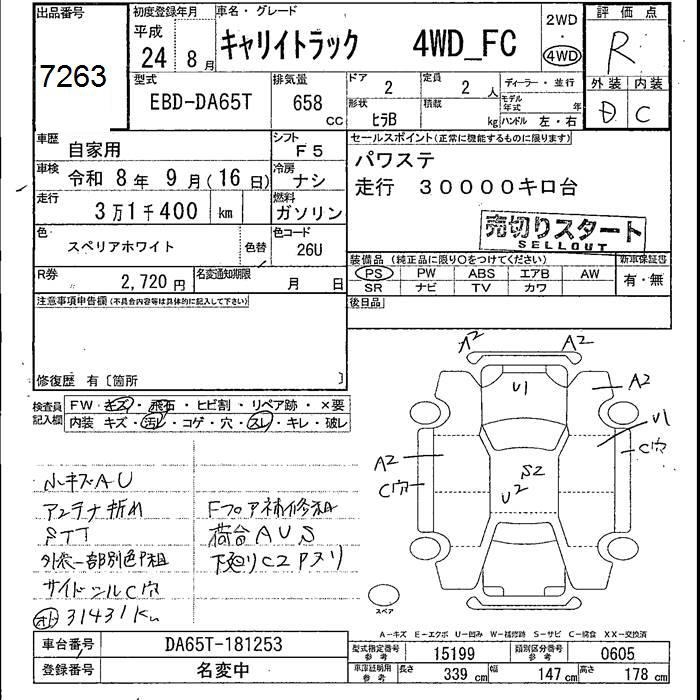 出品番号
7263
初度登録年月
平成
24 8 月
車名・グレード
キャリイトラック 4WD_FC
2WD
・
4WD
評価点
R
外装 内装
D C
型式
EBD-DA65T
排気量
658
CC
ドア
2
形状
ヒラB
定員
2 人
積載
kg
ディーラー・並行
モデル年式 年
ハンドル 左・右
車歴
自家用
シフト
F5
車検
令和 8 年 9 月(16日)
冷房
ナシ
走行
3万1千400 km
燃料
ガソリン
色
スペリアホワイト
色替
色コード
26U
R券
2,720 円
名変通知期限
月 日
セールスポイント(正常に機能するものに限ります)
パワステ
走行 30000キロ台
売切りスタート
SELLOUT
装備品(純正品に限り○をつけてください)
新車保証書
PS PW ABS エアB AW
SR ナビ TV カワ
有・無
後日品
注意事項申告欄(不具合内容等は具体的に記入して下さい)
修復歴 有〔箇所 〕
検査員
記入欄
FW キズ・飛石・ヒビ割・リペア跡・×要
内装 キズ・汚レ・コゲ・穴・スレ・キレ・破レ
小キズAU
アンテナ折れ
Fフロア補修組
荷台AUS
外装一部別色P組
下廻りC2Pヌリ
サイドシルC穴
31431Km
A2 A2
U1
A2
U1
C穴
A2
C穴
S2
U2
スペア
A-キズ E-エクボ U-凹み W-補修跡 S-サビ C-腐食 XX-交換済
車台番号
DA65T-181253
登録番号
名変中
型式指定番号
参考
15199
類別区分番号
参考
0605
車庫証明用
参考
長さ 339 cm 幅 147 cm 高さ 178 cm